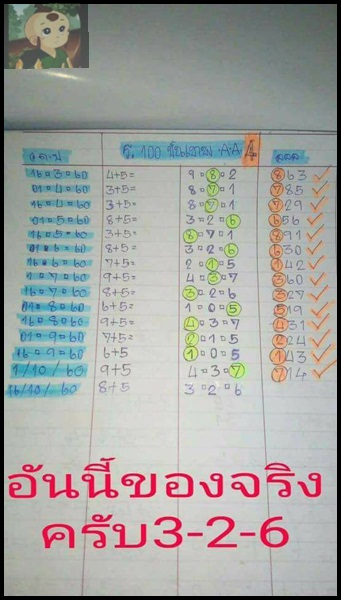 ว.ด.ป ร. 100 A.A 4
16=3=60 4+5= 9=8=2 863 ✓
01=4=60 3+5= 8=7=1 785 ✓
16=4=60 3+5= 8=7=1 729 ✓
01=5=60 8+5= 3=2=6 656 ✓
16=5=60 3+5= 8=7=1 891 ✓
01=6=60 8+5= 3=2=6 630 ✓
16=6=60 7+5= 2=1=5 142 ✓
1=7=60 9+5= 4=3=7 360 ✓
16=7=60 8+5= 3=2=6 327 ✓
01=8=60 6+5= 1=0=5 519 ✓
16=8=60 9+5= 4=3=7 431 ✓
01=9=60 7+5= 2=1=5 224 ✓
16=9=60 6+5 1=0=5 143 ✓
1/10/60 9+5 4=3=7 714 ✓
16/10/60 8+5 3=2=6
อันนี้ของจริง
ครับ3-2-6